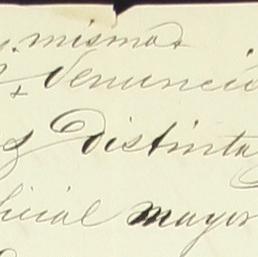 mismos
denuncia
distinta
icial mayor